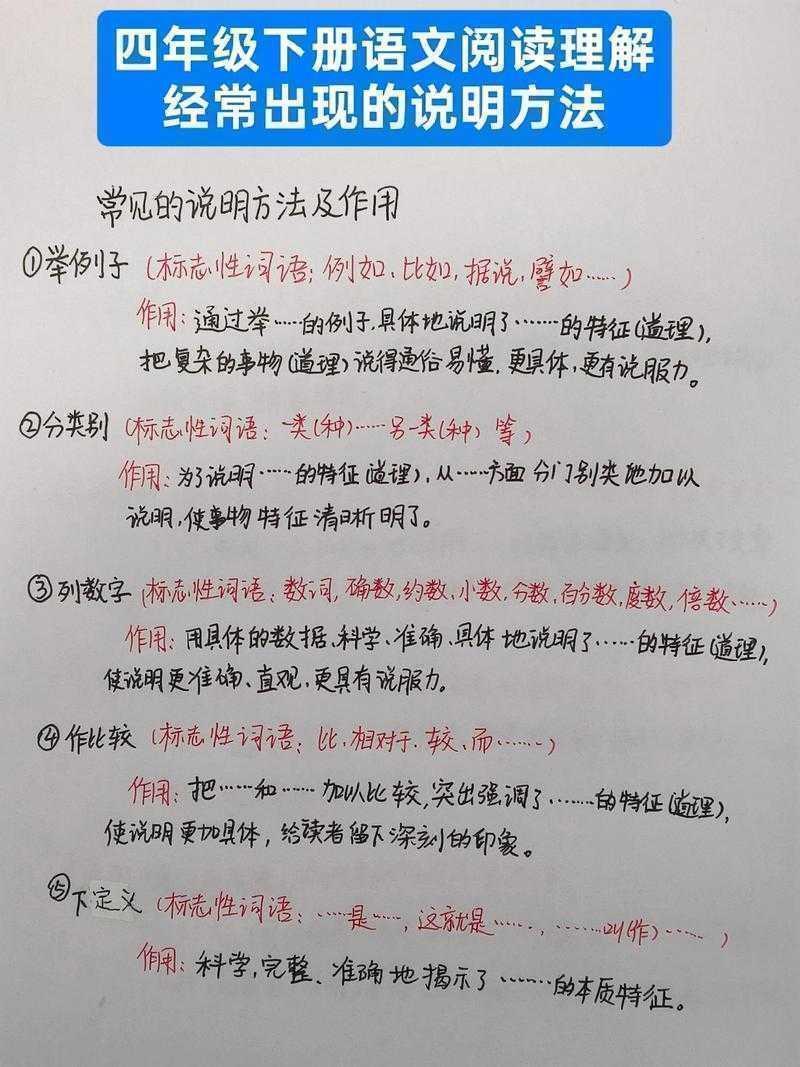 四年级下册语文阅读理解
经常出现的说明方法
常见的说明方法及作用
①举例子（标志性词语：例如、比如，据说，譬如……）
作用：通过举……的例子，具体地说明了……的特征（道理），
把复杂的事物（道理）说得通俗易懂，更具体，更有说服力。
②分类别（标志性词语：一类（种）……另一类（种）等）
作用：为了说明……的特征（道理），从……方面分门别类地加以
说明，使事物特征清晰明了。
③列数字（标志性词语：数词，确数，约数，小数，分数，百分数，度数，倍数……）
作用：用具体的数据、科学、准确、具体地说明了……的特征（道理），
使说明更准确、直观、更具有说服力。
④作比较（标志性词语：比、相对于、较、而……）
作用：把……和……加以比较，突出强调了……的特征（道理），
使说明更加具体，给读者留下深刻的印象。
⑤下定义（标志性词语：……是……，这就是……，……叫（作）……）
作用：科学，完整、准确地揭示了……的本质特征。